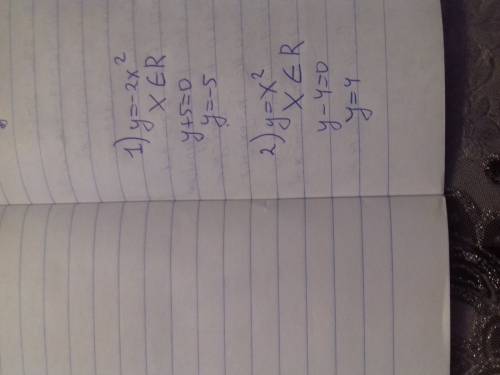 1) y=-2x²
X ∈ R
y+5=0
y=-5
2) y=x²
X ∈ R
y-4=0
y=4